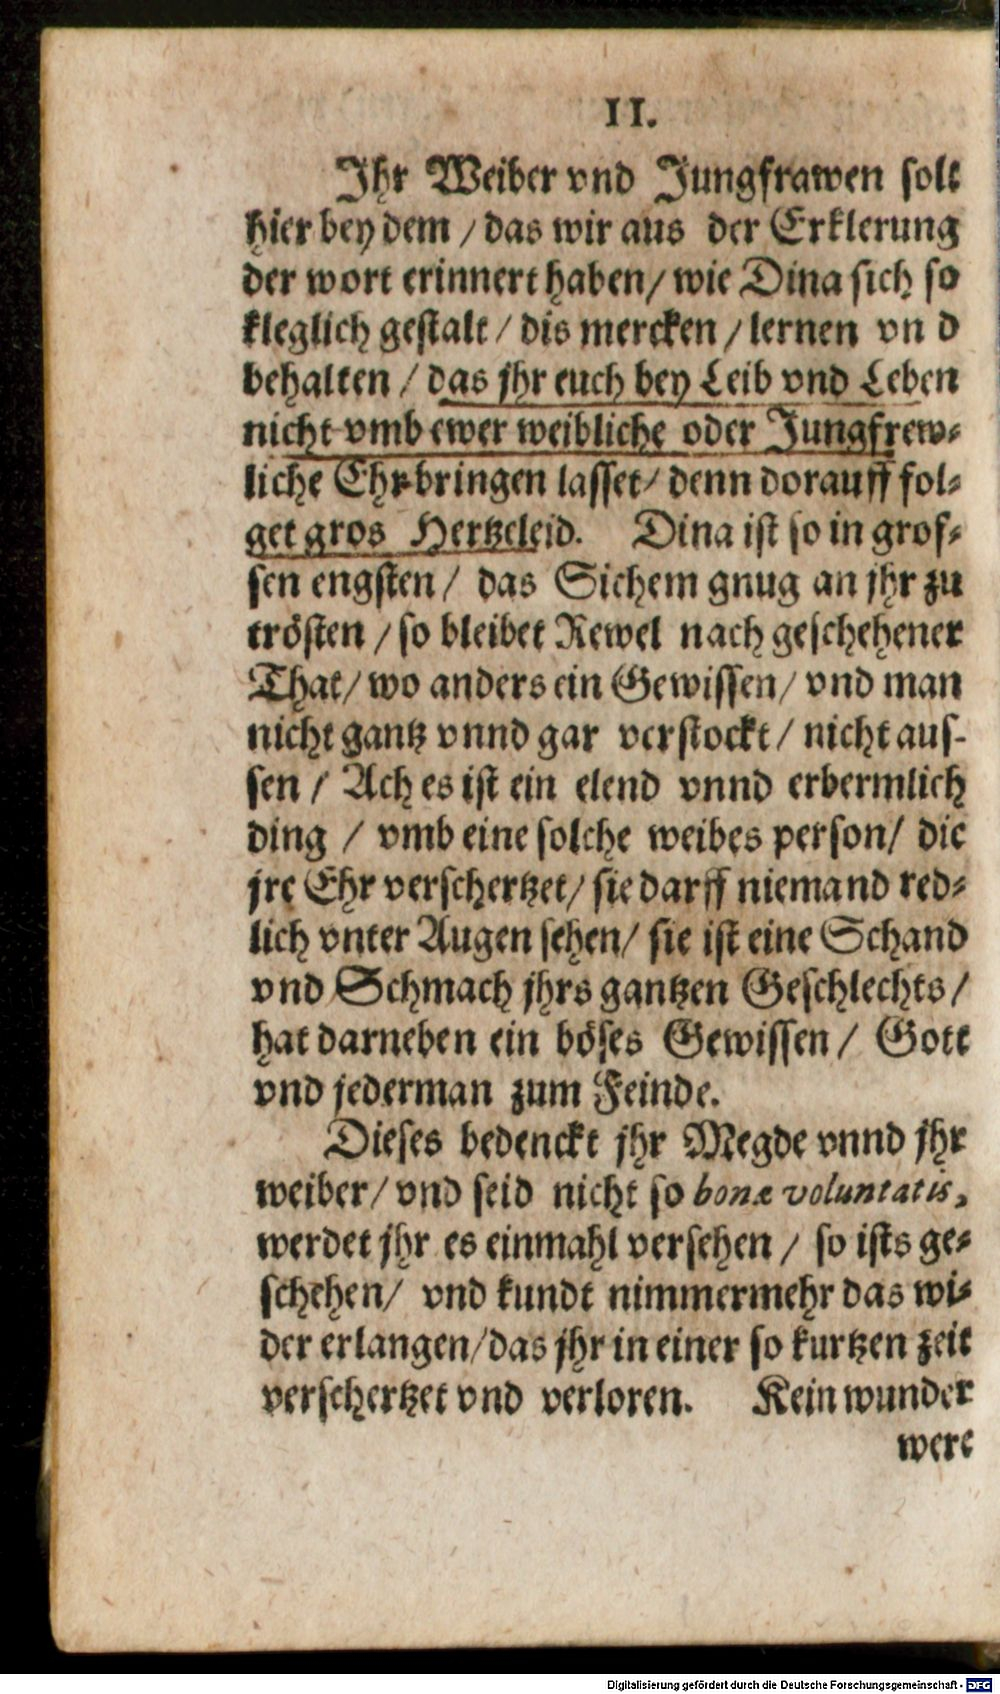 II.
Jhr Weiber vnd Jungfrawen solt
hier bey dem / das wir aus der Erklerung
der wort erinnert haben / wie Dina sich so
kleglich gestalt / dis mercken / lernen vn d
behalten / das jhr euch bey Leib vnd Leben
nicht vmb ewer weibliche oder Jungfrew⸗
liche Ehr bringen lasset / denn dorauff fol⸗
get gros Hertzeleid. Dina ist so in gros⸗
sen engsten / das Sichem gnug an jhr zu
trösten / so bleibet Rewel nach geschehener
That / wo anders ein Gewissen / vnd man
nicht gantz vnnd gar verstockt / nicht aus-
sen / Ach es ist ein elend vnnd erbermlich
ding / vmb eine solche weibes person / die
jre Ehr verschertzet / sie darff niemand red⸗
lich vnter Augen sehen / sie ist eine Schand
vnd Schmach jhrs gantzen Geschlechts /
hat darneben ein böses Gewissen / Gott
vnd jederman zum Feinde.
Dieses bedenckt jhr Megde vnnd jhr
weiber / vnd seid nicht so bonæ voluntatis,
werdet jhr es einmahl versehen / so ists ge⸗
schehen / vnd kundt nimmermehr das wi⸗
der erlangen / das jhr in einer so kurtzen zeit
verschertzet vnd verloren. Kein wunder
were
Digitalisierung gefördert durch die Deutsche Forschungsgemeinschaft - DFG